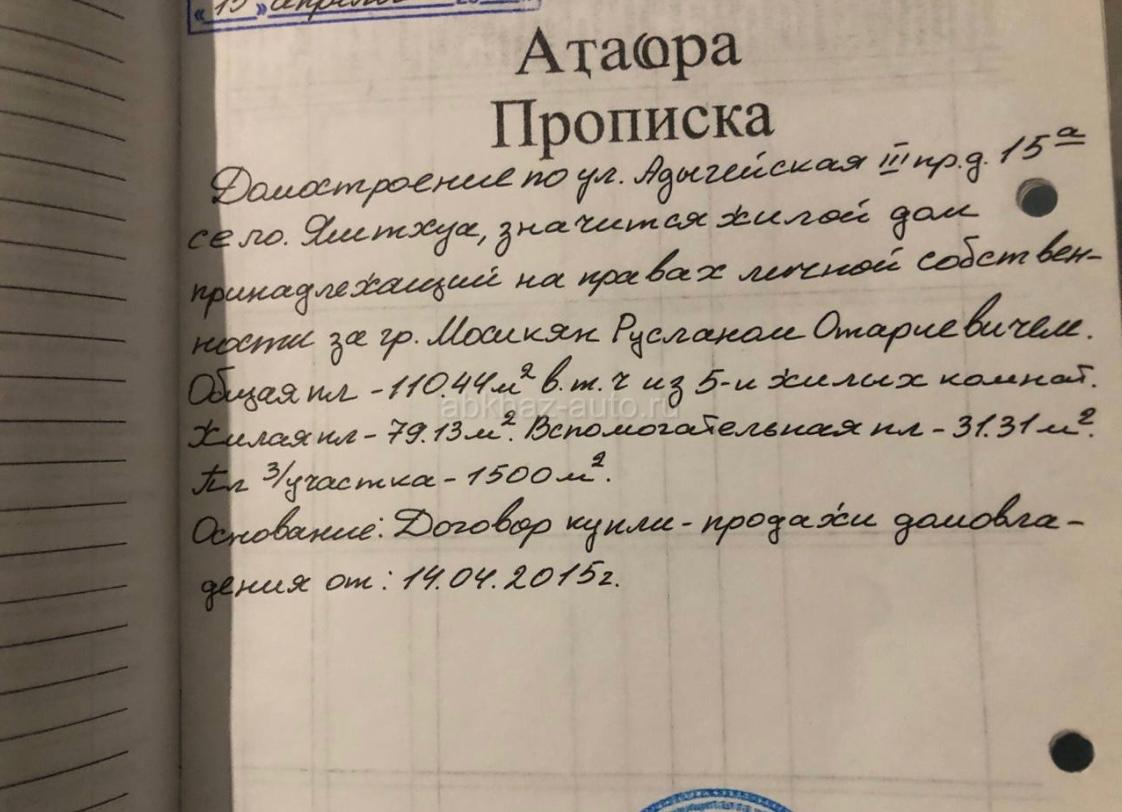 « 15 » апреля
Аҭаҩра
Прописка
Домостроение по ул. Адыгейская III пр.д. 15а
село. Яштхуа, значится жилой дом
принадлежащий на правах личной собствен-
ности за гр. Мосикян Русланом Отариевичем.
Общая пл - 110.44 м² в.т.ч из 5-и жилых комнат.
abkhaz-auto.ru
Жилая пл - 79.13 м². Вспомогательная пл - 31.31 м².
Пл з/участка - 1500 м².
Основание: Договор купли-продажи домовла-
дения от: 14.04.2015г.